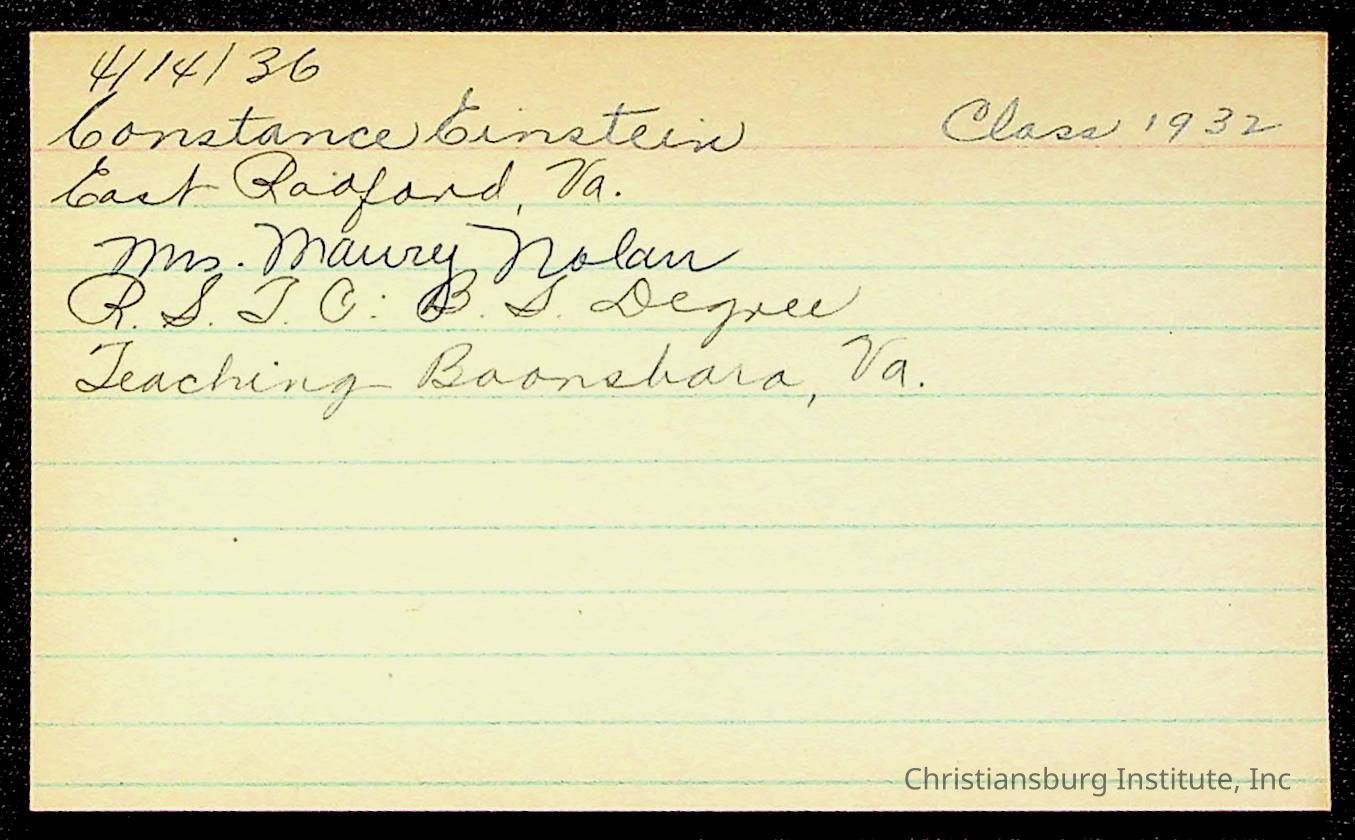 4/14/36
Constance Einstein Class 1932
East Radford, Va.
Mrs. Maury Nolan
R. S. T. C: B. S. Degree
Teaching Boonsboro, Va.
Christiansburg Institute, Inc